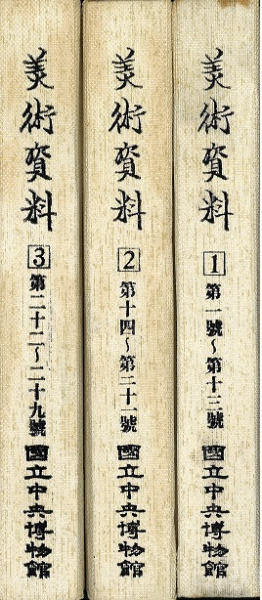 美術資料
3
第二十二~二十九號
國立中央博物館
美術資料
2
第十四~第二十一號
國立中央博物館
美術資料
1
第一號~第十三號
國立中央博物館